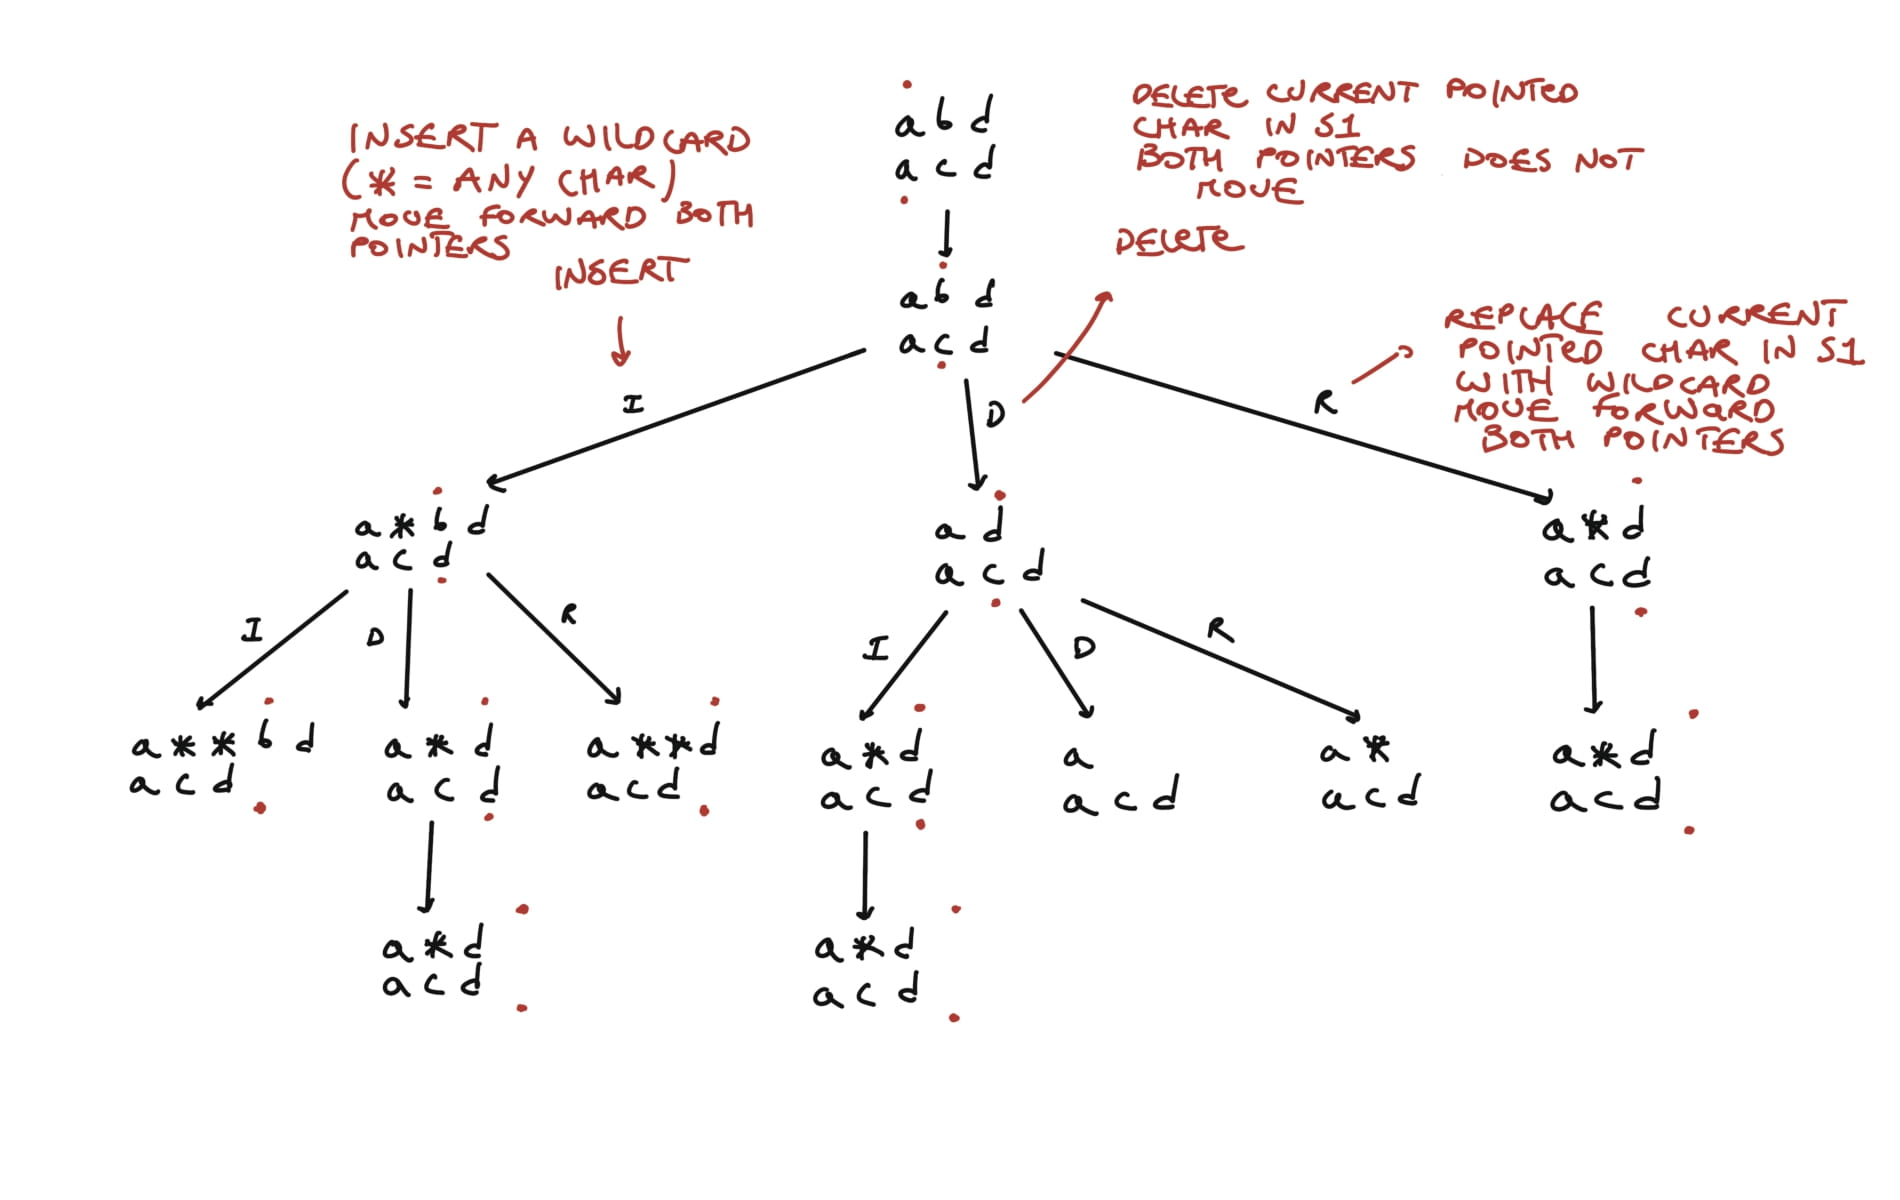 INSERT A WILDCARD
(* = ANY CHAR)
MOVE FORWARD BOTH
POINTERS
INSERT
a b d
a c d
DELETE CURRENT POINTED
CHAR IN S1
BOTH POINTERS DOES NOT
MOVE
DELETE
a b d
a c d
REPLACE CURRENT
POINTED CHAR IN S1
WITH WILDCARD
MOVE FORWARD
BOTH POINTERS
I
D
R
a * b d
a c d
a d
a c d
a * d
a c d
I
D
R
I
D
R
a * * b d
a c d
a * d
a c d
a * * d
a c d
a * d
a c d
a
a c d
a *
a c d
a * d
a c d
a * d
a c d
a * d
a c d